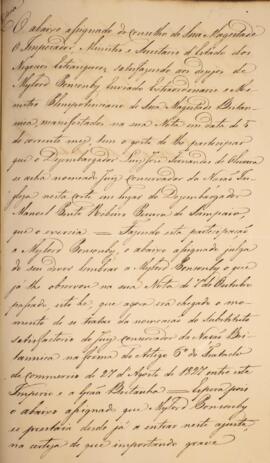 O abaixo assignado do conselho de Sua Magestade
O Imperador, Ministro e Secretario d'Estado dos
Negocios Estrangeiros, satisfazendo aos desejos de
Mylord Ponsonby Enviado Extraordinario e Mi-
nistro Plenipotenciario de Sua Magestade Britan-
nica, manifestados na sua Nota em data de 5
do corrente mez, tem o gosto de lhe participar
que o Dezembargador Fernandes de Oliveira
se acha nomeado Juiz Conservador da Nação In-
gleza nesta corte em lugar do Dezembargador
Manoel Pinto Ribeiro Pereira de Sampaio,
que o exercia = Fazendo esta participação
a Mylord Ponsonby, o abaixo assignado julga
do seu dever lembrar a Mylord Ponsonby o que
já lhe observou na sua Nota de 7 de Outubro
passado, isto he, que agora era chegado o mo-
mento de se tratar da nomeação do Substituto
satisfactorio do Juiz conservador da Nação Bri-
tannica na forma do Artigo 6º do Tratado
de commercio de 27 d'Agosto de 1827 entre este
Imperio e a Grãa Bretanha = Espera pois
o abaixo assignado que Mylord Ponsonby
se prestará desde já a entrar neste ajuste,
na certeza de que importando grave